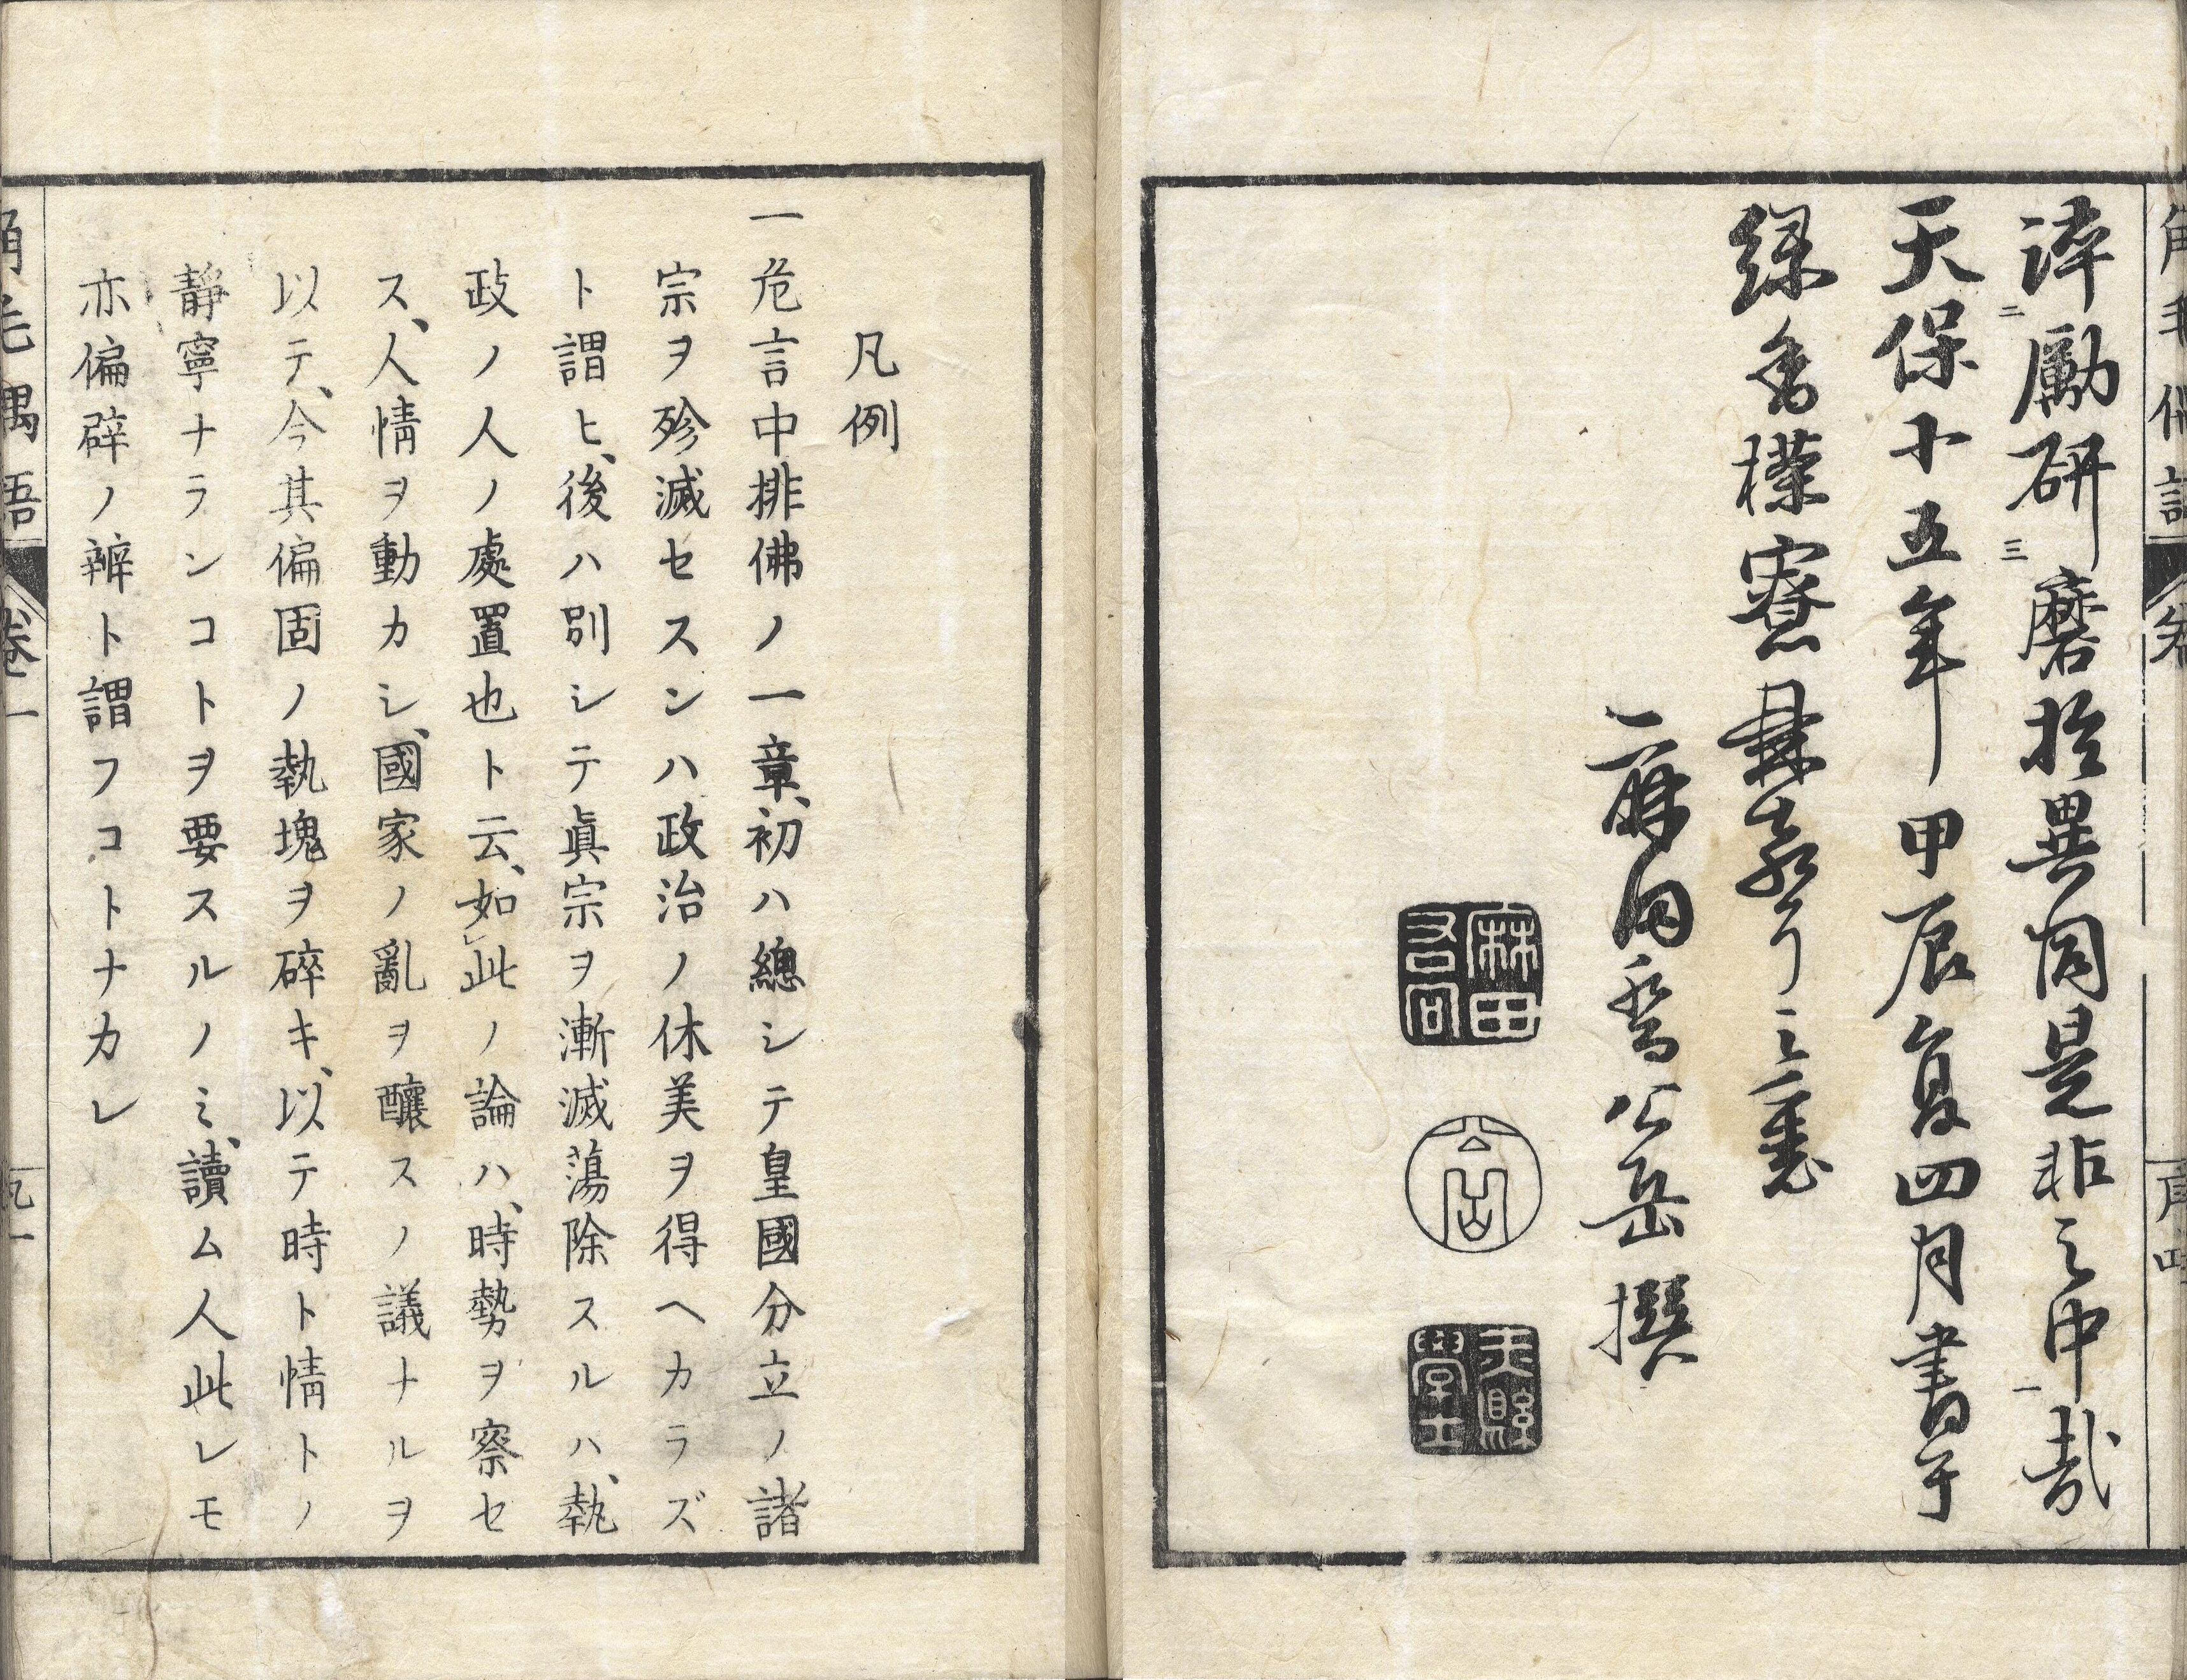 淬勵研磨於異同是非之中哉
天保十五年甲辰夏四月書于
緑香
公岳撰
角毛偶語
凡例
一危言中排佛ノ一章、初ハ總シテ皇國分立ノ諸
宗ヲ殄滅セスンハ政治ノ休美ヲ得ヘカラズ
ト謂ヒ、後ハ別シテ眞宗ヲ漸滅蕩除スルハ、執
政ノ人ノ處置也ト云、如此ノ論ハ、時勢ヲ察セ
ス、人情ヲ動カシ、國家ノ亂ヲ釀スノ議ナルヲ
以テ、今其偏固ノ執塊ヲ碎キ、以テ時ト情トノ
靜寧ナランコトヲ要スルノミ、讀ム人此レモ
亦偏辟ノ辨ト謂フコトナカレ
角毛偶語 卷一 凡一